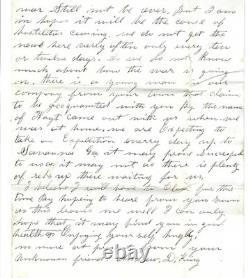 war still not be over, but I am
in hopes it will be the cause of
hostilities ceasing, we do not get the
news here varly often only every ten
or twelve days, so we do not know
much about how the war is going
on, there is a young man in our
company from your town that claims
to be acquainted with you by the name
of Hoyt came out with us when we
was at home, we are expecting to
take an Expedition every day up to
Savannah Ga it may proove Success to
us it may not as there is plenty
of rebs up there waiting for us,
I believe I will have to Close for this
time by hoping to hear from you soon
as this leaves me well I can only
hope that it may find you in good
health & Enjoying your self hugely,
no more at present from your
unknown friend D. King